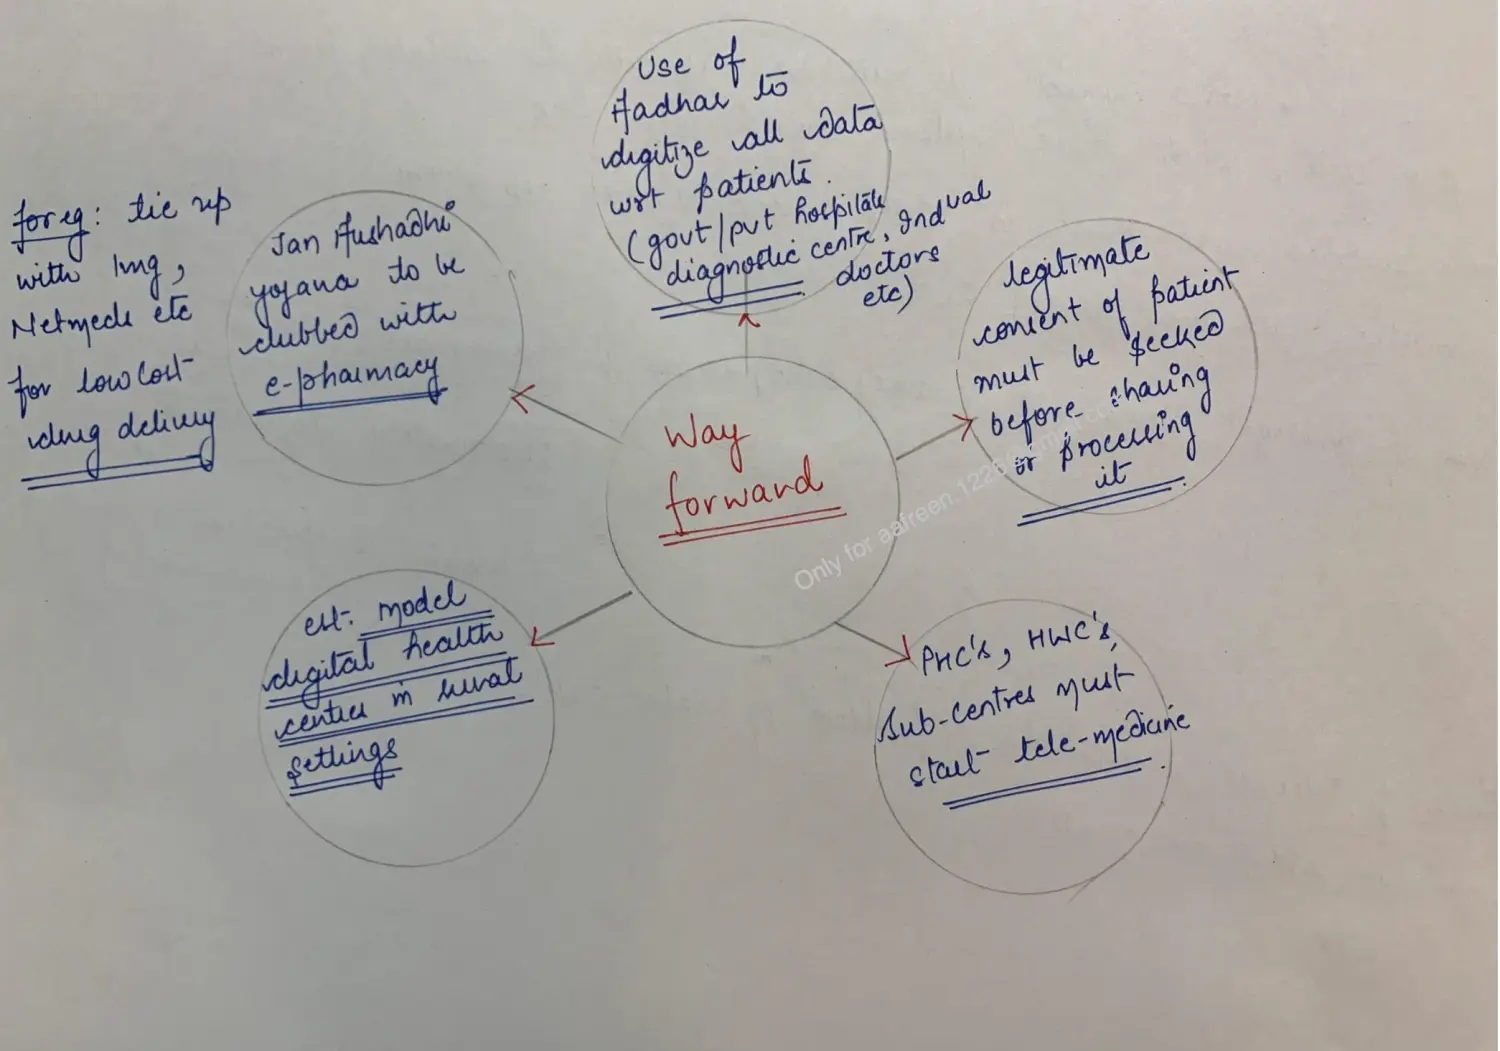 Use of
Aadhar to
digitize all data
wrt patients.
(govt/pvt hospitals
diagnostic centre, Indvual
doctors
etc)
legitimate
consent of patient
must be seeked
before sharing
or processing
it.
PHC's, HWC's,
sub-centres must
start tele-medicine.
est. model
digital health
centres in rural
settings
Jan Aushadhi
yojana to be
clubbed with
e-pharmacy
for eg: tie up
with 1mg,
Netmeds etc
for low cost
drug delivery
Way
forward